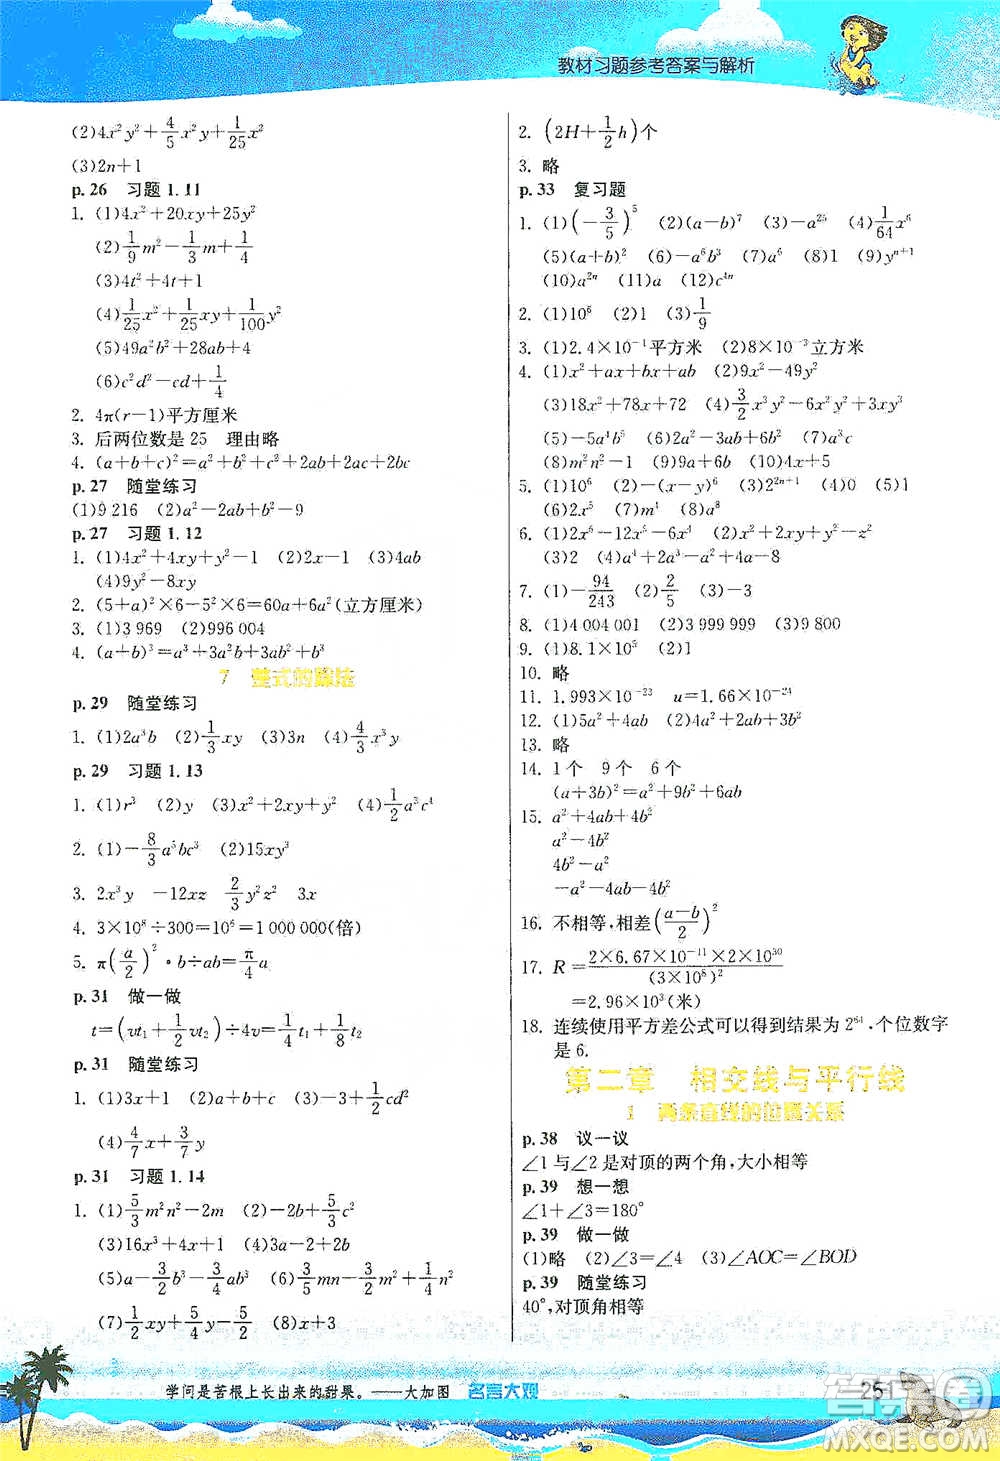 教材习题参考答案与解析
(2)4x²y²+4/5x²y+1/25x²
(3)2n+1
p.26 习题1.11
1. (1)4x²+20xy+25y²
(2)1/9m²-1/3m+1/4
(3)4t²+4t+1
(4)1/25x²+1/25xy+1/100y²
(5)49a²b²+28ab+4
(6)c²d²-cd+1/4
2. 4π(r-1)平方厘米
3. 后两位数是25 理由略
4. (a+b+c)²=a²+b²+c²+2ab+2ac+2bc
p.27 随堂练习
(1)9 216 (2)a²-2ab+b²-9
p.27 习题1.12
1. (1)4x²+4xy+y²-1 (2)2x-1 (3)4xy
(4)9y²-8xy
2. (5+a)²×6-5²×6=60a+6a²(立方厘米)
3. (1)3 969 (2)996 004
4. (a+b)³=a³+3a²b+3ab²+b³
7 整式的除法
p.29 随堂练习
1. (1)2a³b (2)1/3xy (3)3n (4)4/3x³y
p.29 习题1.13
1. (1)r³ (2)y (3)x²+2xy+y² (4)1/2a³c⁴
2. (1)-8/3a⁵bc³ (2)15xy³
3. 2x³y -12xz 2/3y²z² 3x
4. 3×10⁸÷300=10⁶=1 000 000(倍)
5. π(a/2)²·b÷ab=π/4a
p.31 做一做
t=(vt₁+1/2vt₂)÷4v=1/4t₁+1/8t₂
p.31 随堂练习
1. (1)3x+1 (2)a+b+c (3)-3+1/2cd²
(4)4/7x+3/7y
p.31 习题1.14
1. (1)5/3m²n²-2m (2)-2b+5/3c²
(3)16x³-8x²+4x (4)3a-2b+1
(5)a-1/2b³-3/4ab³ (6)3/5mn-3/2m-1
(7)1/2xy+5/4y-5/2 (8)x+3
2. (2H+1/2h)个
3. 略
p.33 复习题
1. (1)(-3/5)⁵ (2)(a-b)⁷ (3)-a²⁵ (4)1/64x⁶
(5)(a+b)² (6)-a⁶b³ (7)a⁶ (8)1 (9)yⁿ⁺¹
(10)a²ⁿ (11)a (12)c⁴ⁿ
2. (1)10⁶ (2)1 (3)1/9
3. (1)2.4×10⁻¹平方米 (2)8×10⁻³立方米
4. (1)x²+ax+bx+ab (2)9x²-49y²
(3)18x²+78x+72 (4)3/2x³y²-6x²y²+3xy³
(5)-5a¹b⁵ (6)2a²-3ab+6b² (7)a³c
(8)m²n²-1 (9)x²+4x+4 (10)4x+5
5. (1)10⁶ (2)-(x-y)⁶ (3)2²ⁿ⁺¹ (4)0 (5)1
(6)2x⁵ (7)m⁴ (8)a⁸
6. (1)2x⁶-12x⁵-6x⁴ (2)-x²+z²
(3)2 (4)a⁴+4a³-a²+4a-8
7. (1)-94/243 (2)2/5 (3)-3
8. (1)4 004 001 (2)3 999 999 (3)9 800
9. (1)8.1×10⁻⁵ (2)1
10. 略
11. 1.993×10⁻²³ u=1.66×10⁻²⁴
12. (1)5a²+4ab (2)4a²+2ab+2b²
13. 略
14. 1个 9个 6个
(a+3b)²=a²+9b²+6ab
15. a²+4ab+4b²
a²-4b²
4b²-a²
-a²-4ab-4b²
16. 不相等,相差((a-b)/2)²
17. R=2×6.67×10⁻¹¹×2×10³⁰/(3×10⁸)²
=2.96×10³(米)
18. 连续使用平方差公式可以得到结果为2⁶⁴,个位数字
是6.
第二章 相交线与平行线
1 两条直线的位置关系
p.38 议一议
∠1与∠2是对顶的两个角,大小相等
p.39 想一想
∠1+∠3=180°
p.39 做一做
(1)略 (2)∠3=∠4 (3)∠AOC=∠BOD
p.39 随堂练习
40°,对顶角相等
学问是苦根上长出来的甜果。——大加图 名言大观
25
答案圈
MXQE.COM